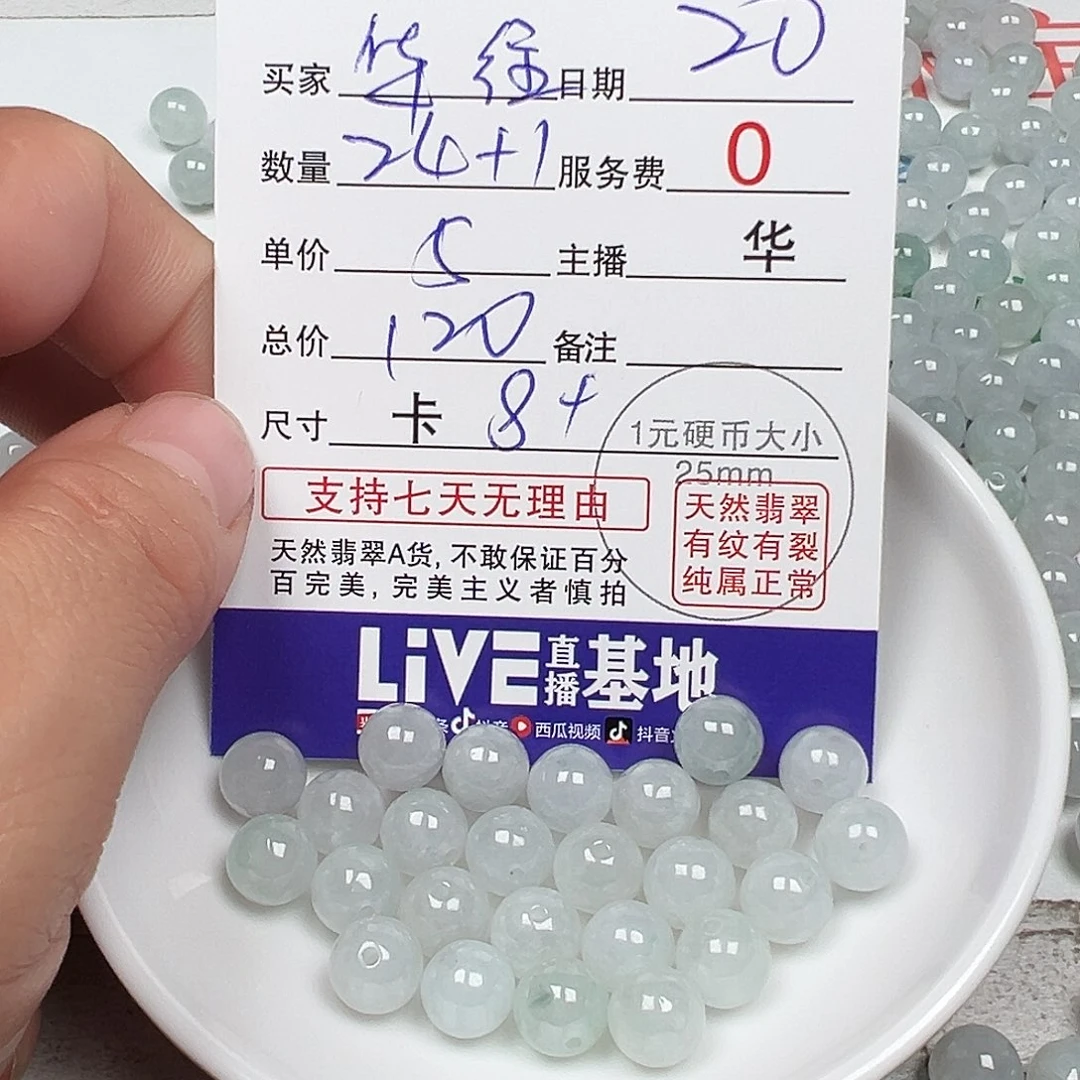 买家 华 绿 日期 20
数量 24+1 服务费 0
单价 5 主播 华
总价 120 备注
尺寸 卡 8+
1元硬币大小
25mm
支持七天无理由
天然翡翠
有纹有裂
纯属正常
天然翡翠A货,不敢保证百分
百完美,完美主义者慎拍
LiVE直播基地
抖音 西瓜视频 抖音